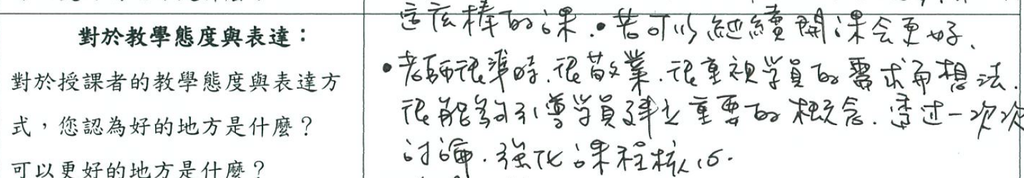 對於教學態度與表達：
對於授課者的教學態度與表達方
式，您認為好的地方是什麼？
可以更好的地方是什麼？
這麼棒的課．•若可以繼續開課會更好．
•老師很準時．很敬業．很重視学員的需求與想法．
很能夠引導学員建立重要的概念．透过一次次
討論．強化課程核心．